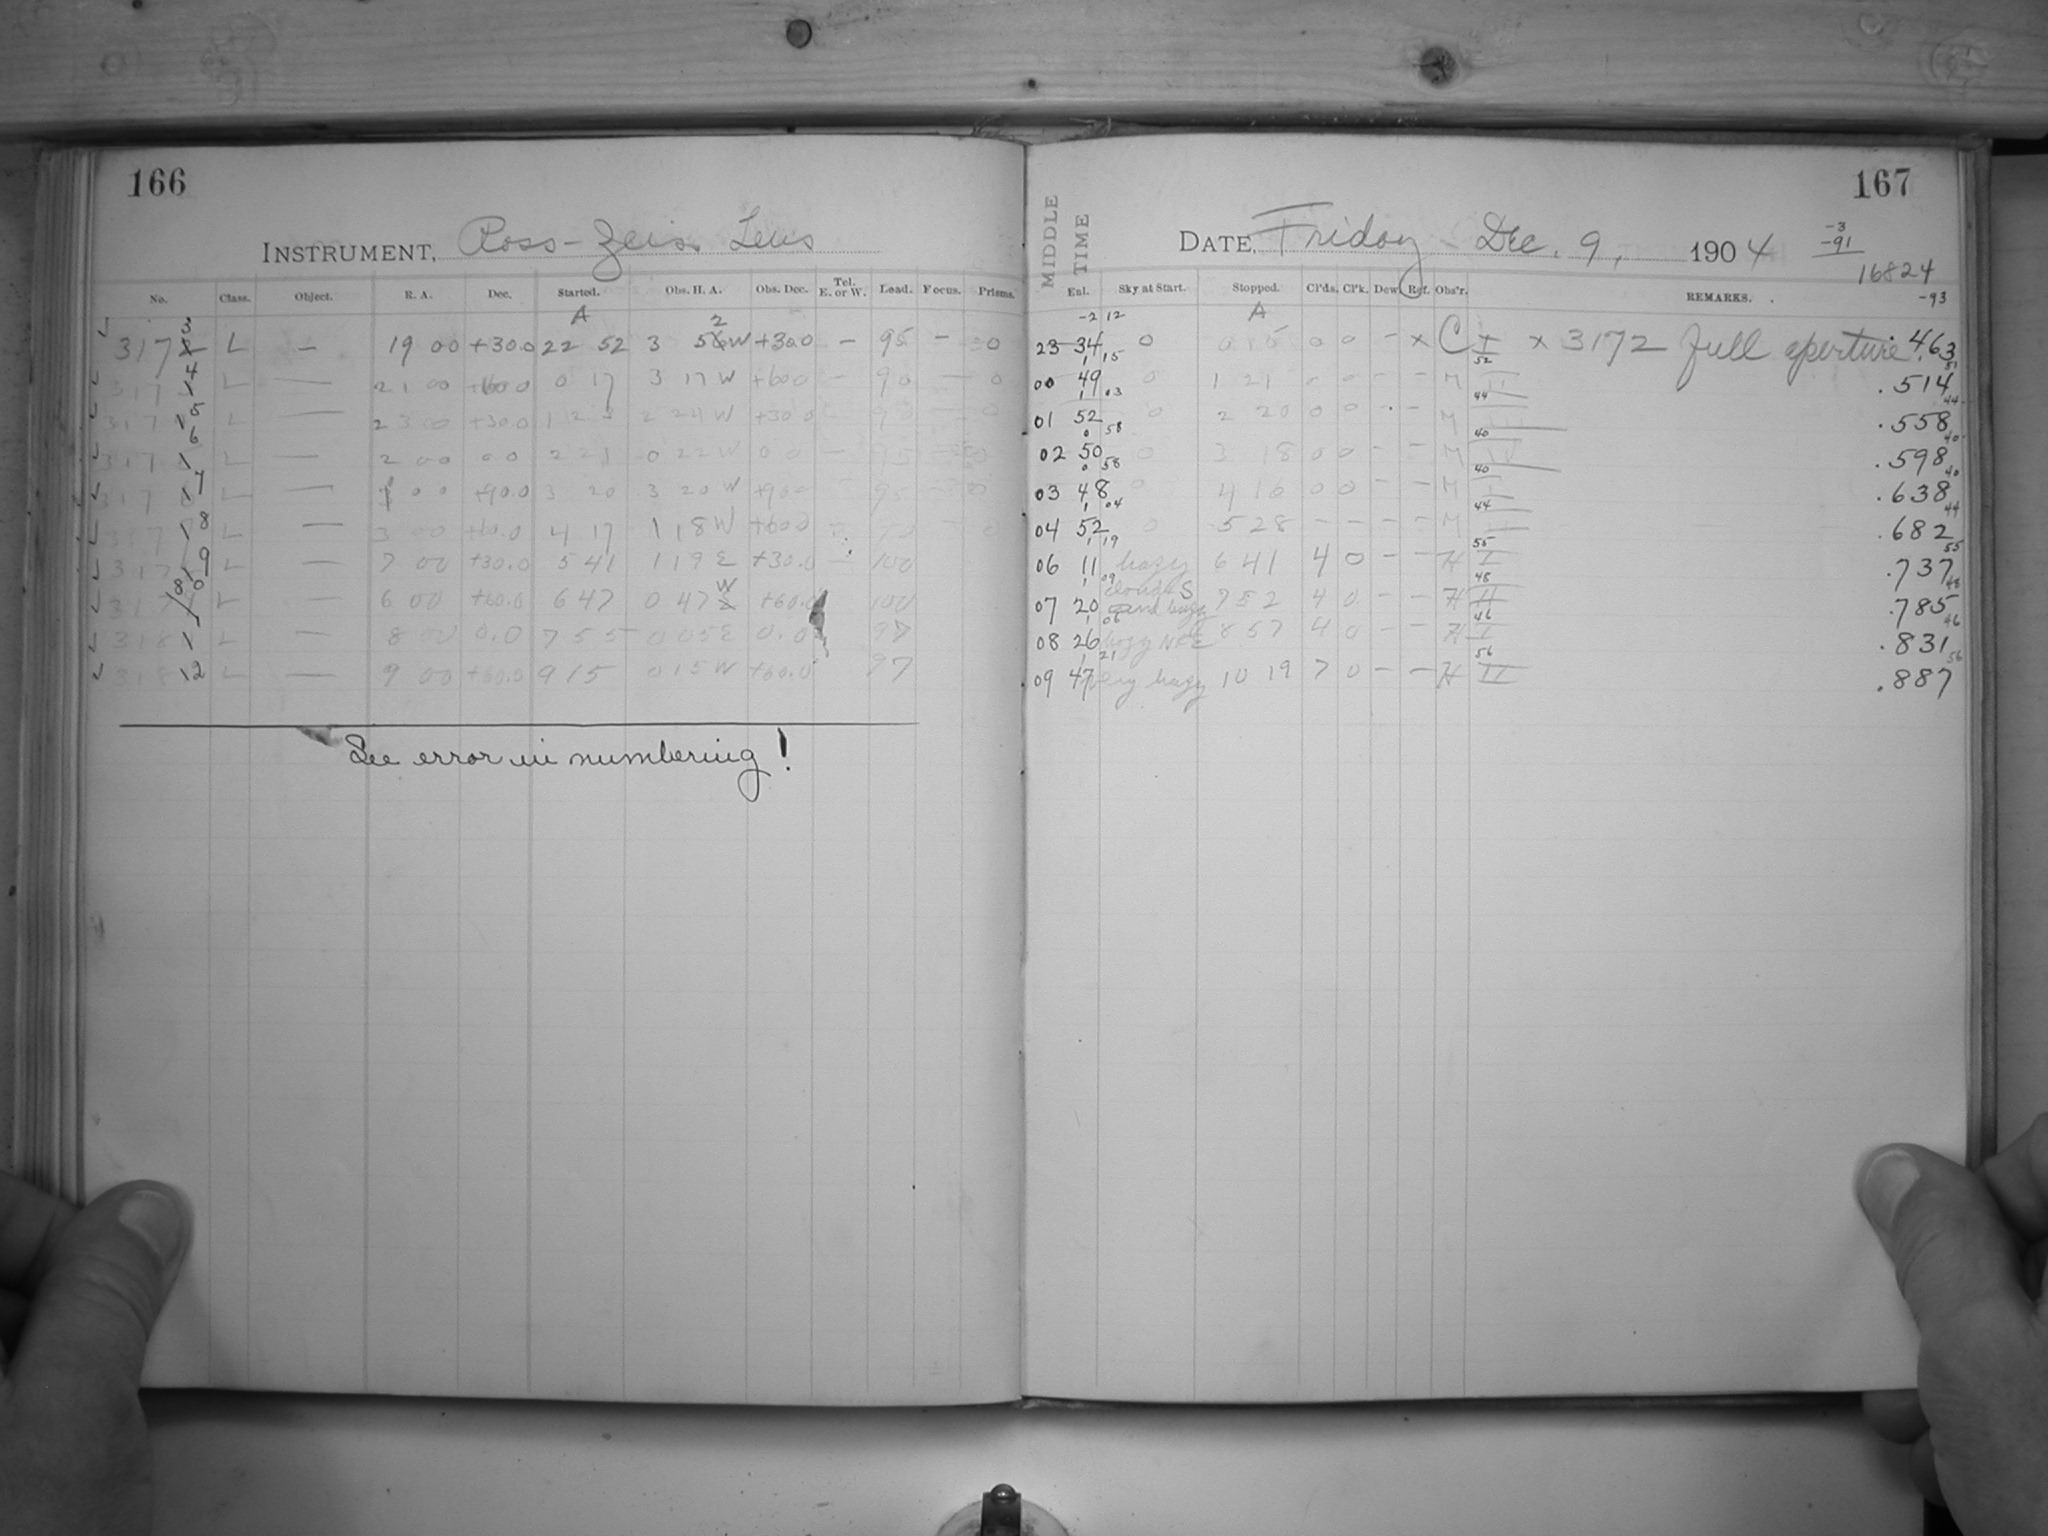 166
INSTRUMENT, Ross-Zeiss Lens
No. Class. Object. R. A. Dec. Started. Obs. H. A. Obs. Dec. Tel. E. or W. Load. Focus. Prisms.
A
3173 L — 19 00 +30.0 22 52 3 52 W +30.0 — 95 — 0
3174 L — 21 00 +60.0 0 17 3 17 W +60.0 — 90 — 0
3175 L — 23 00 +30.0 1 23 2 24 W +30.0
3176 L — 2 00 0.0 2 21 0 22 W 0.0 — 95
3177 L — 0 0 +90.0 3 20 3 20 W +90.0 95
3178 L — 3 00 +60.0 4 17 1 18 W +60.0
3179 L — 7 00 +30.0 5 41 1 19 E +30.0 — 100
3180 L — 6 00 +60.0 6 47 0 47 W +60.0 100
3181 L — 8 00 0.0 7 55 0 05 E 0.0 97
3182 L — 9 00 +60.0 9 15 0 15 W +60.0 97
See error in numbering!
167
DATE, Friday - Dec. 9, 1904
-3
-91
16824
-93
MIDDLE TIME
Enl. Sky at Start. Stopped. Cl'ds. Cl'k. Dew. Ref. Obs'r. REMARKS.
-2 12 A
23 34 0 0 15 0 0 - x C I x 3172 full aperture .463
1 15 52 51
00 49 0 1 21 0 0 - - M II .514
1 03 44 44
01 52 0 2 20 0 0 - - M .558
0 58 40 40
02 50 0 3 18 0 0 - - M .598
0 58 40 40
03 48 0 4 16 0 0 - - M .638
1 04 44 44
04 52 0 5 28 - - - - M .682
1 19 55 55
06 11 hazy 6 41 4 0 - - H I .737
1 09 48 48
07 20 clouds S and hazy 7 52 4 0 - - H II .785
1 06 46 46
08 26 hazy N & E 8 57 4 0 - - H I .831
1 21 56 56
09 47 very hazy 10 19 7 0 - - H II .887